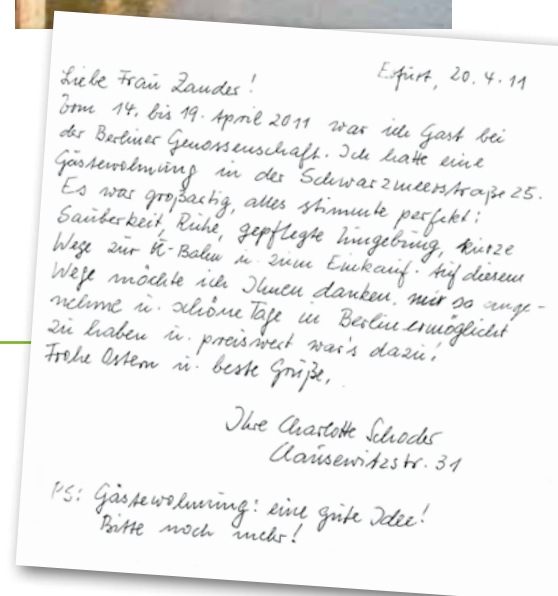 Erfurt, 20.4.11
Liebe Frau Zander!
Vom 14. bis 19. April 2011 war ich Gast bei
der Berliner Genossenschaft. Ich hatte eine
Gästewohnung in der Schwarzmeerstraße 25.
Es war großartig, alles stimmte perfekt:
Sauberkeit, Ruhe, gepflegte Umgebung, kurze
Wege zur U-Bahn u. zum Einkauf. Auf diesem
Wege möchte ich Ihnen danken, mir so ange-
nehme u. schöne Tage in Berlin ermöglicht
zu haben u. preiswert war's dazu!
Frohe Ostern u. beste Grüße,
Ihre Charlotte Schoder
Clausewitzstr. 31
PS: Gästewohnung: eine gute Idee!
Bitte noch mehr!